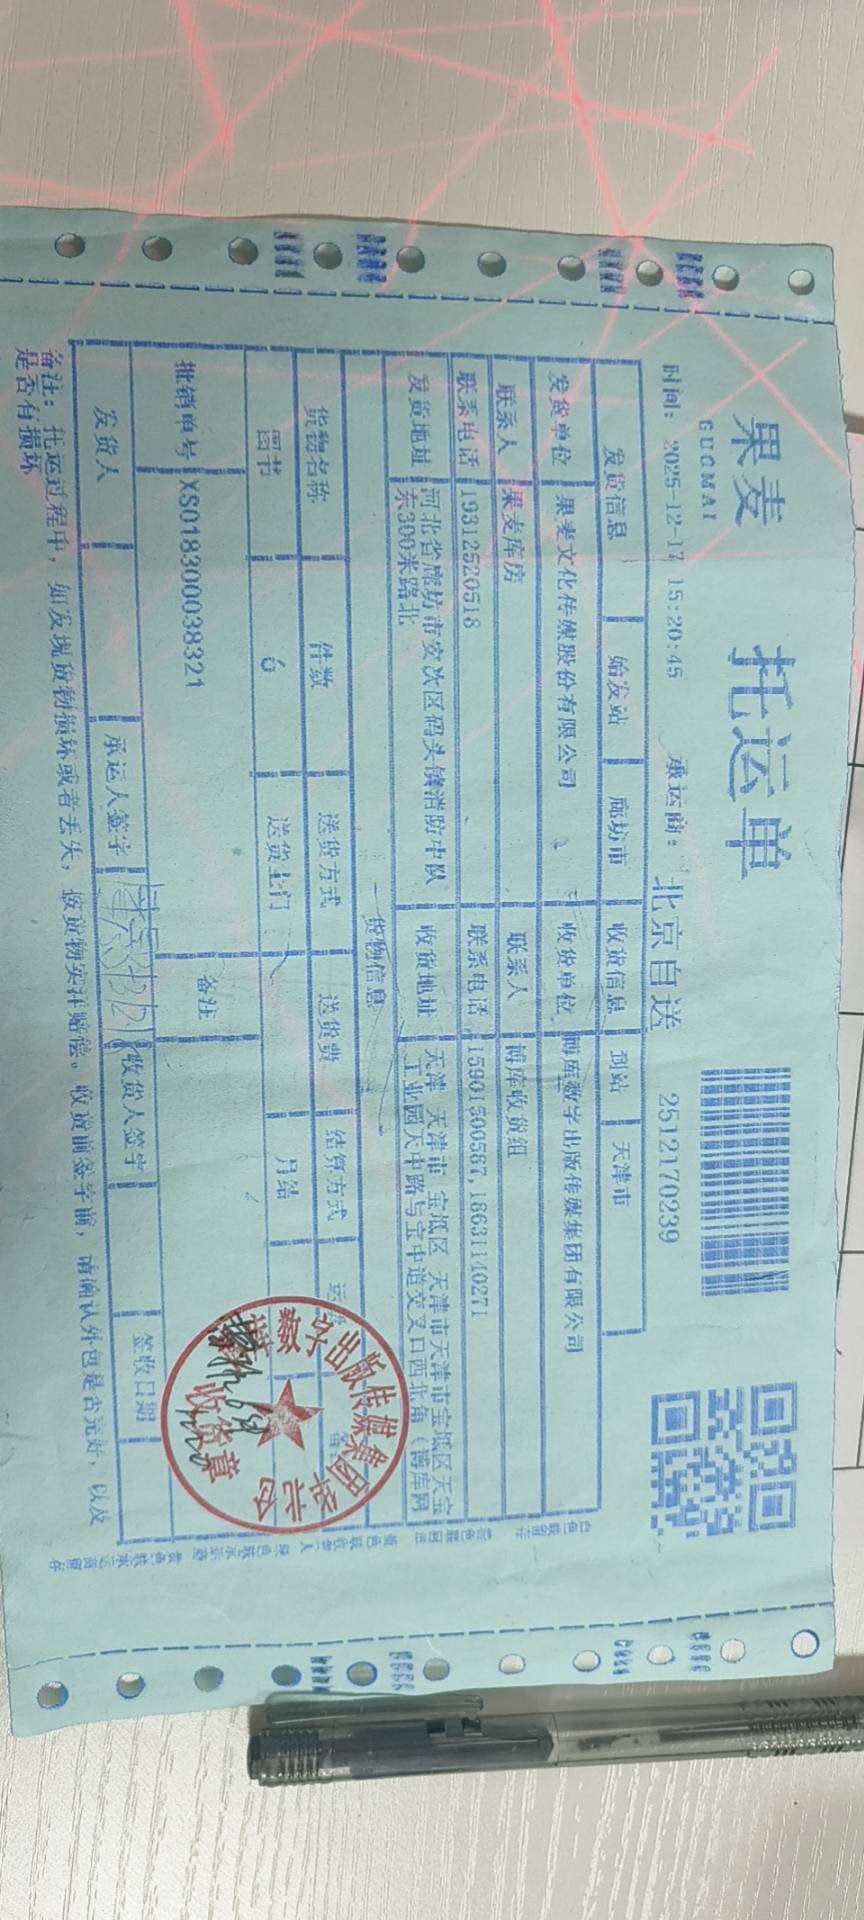 果麦
GUOMAI
托运单
时间：2025-12-17 15:20:45 承运商：北京自送 2512170239
发货信息 始发站 廊坊市 收货信息 到站 天津市
发货单位 果麦文化传媒股份有限公司 收货单位 博库数字出版传媒集团有限公司
联系人 果麦库房 联系人 博库收货组
联系电话 19312520518 联系电话 15901500587,18631140271
发货地址 河北省廊坊市安次区码头镇消防中队东300米路北 收货地址 天津 天津市 宝坻区 天津市天津市宝坻区天宝工业园天中路与宝中道交叉口西北角（博库网
货物信息
货物名称 件数 送货方式 送货费 结算方式
图书 6 送货上门 月结
批销单号 XS018300038321 备注
发货人 承运人签字 收货人签字 签收日期
备注：托运过程中，如发现货物损坏或者丢失，按货物实洋赔偿。收货前签字前，请确认外包是否完好，以及
是否有损坏
数字出版传媒集团
收货章